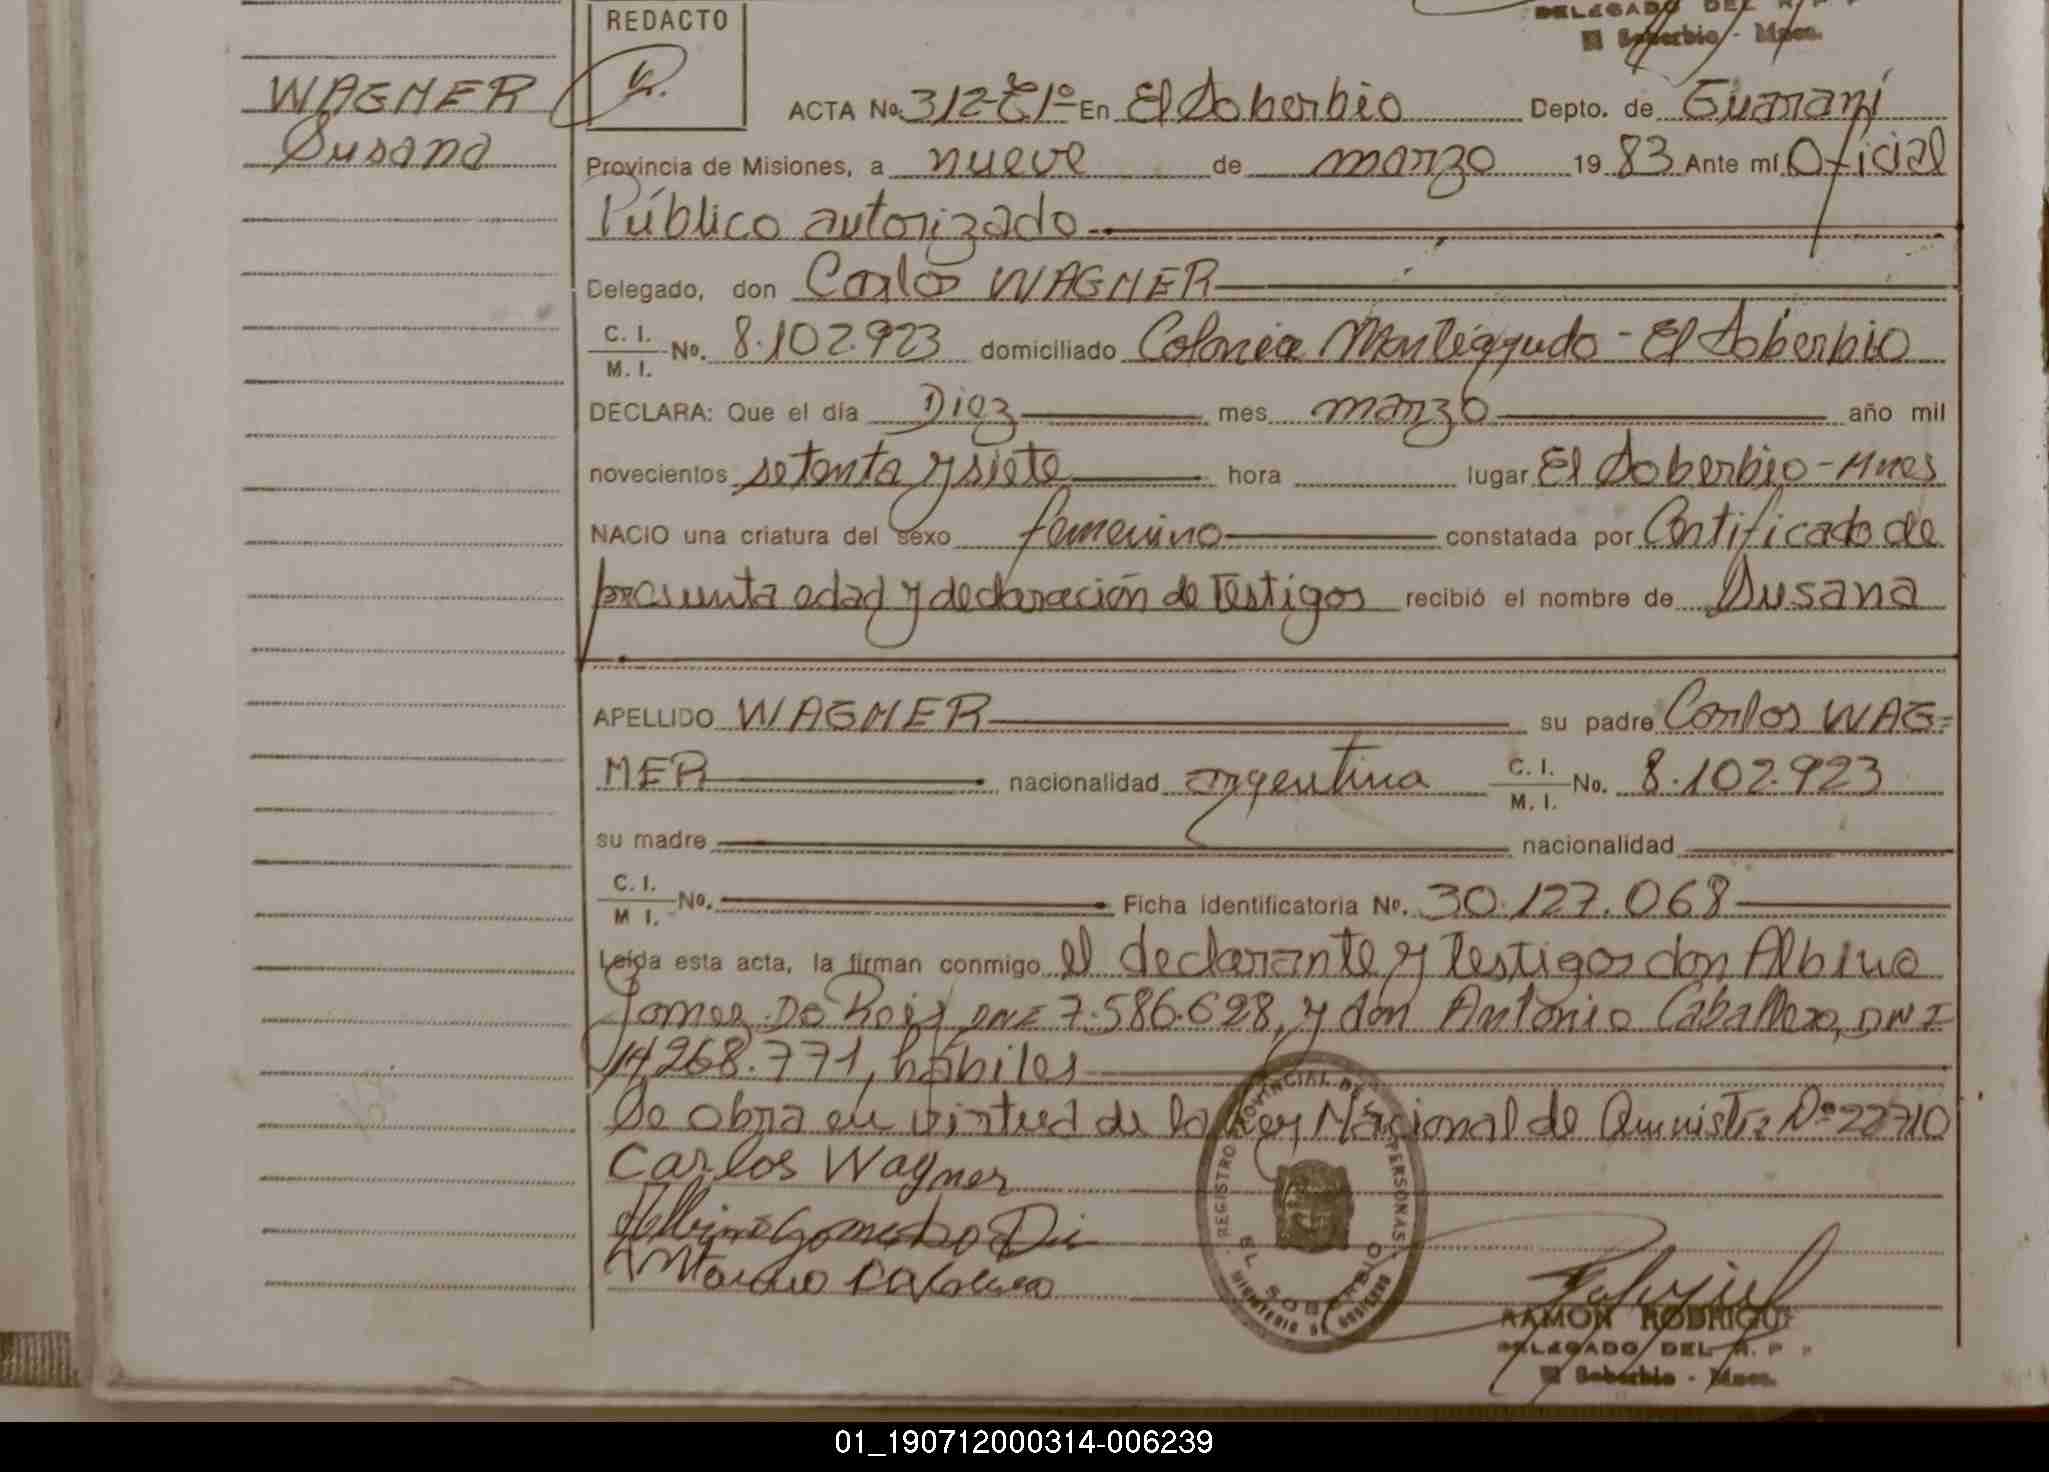 REDACTO
DELEGADO DEL R. P. P
El Soberbio - Mnes.
WAGNER
Susana
ACTA No. 312-T1º En El Soberbio Depto. de Guaraní
Provincia de Misiones, a nueve de marzo 19 83 Ante mí Oficial
Público autorizado
Delegado, don Carlos WAGNER
C. I.
M. I. No. 8.102.923 domiciliado Colonia Monteagudo - El Soberbio
DECLARA: Que el día Diez mes marzo año mil
novecientos setenta y siete hora lugar El Soberbio - Mnes
NACIO una criatura del sexo femenino constatada por Certificado de
presunta edad y declaración de testigos recibió el nombre de Susana
APELLIDO WAGNER su padre Carlos WAG=
NER nacionalidad argentina C. I.
M. I. No. 8.102.923
su madre nacionalidad
C. I.
M I. No. Ficha identificatoria No. 30.127.068
Leída esta acta, la firman conmigo el declarante y testigos don Albino
Gomez Do Reis DNI 7.586.628, y don Antonio Caballero, DNI
14.268.771, hábiles
Se obra en virtud de la Ley Nacional de Amnistía Nº 22710
Carlos Wagner
Antonio Caballero
REGISTRO PROVINCIAL DE LAS PERSONAS
EL SOBERBIO
MINISTERIO DE GOBIERNO
RAMON RODRIGU
DELEGADO DEL R. P P
El Soberbio - Mnes.
01_190712000314-006239